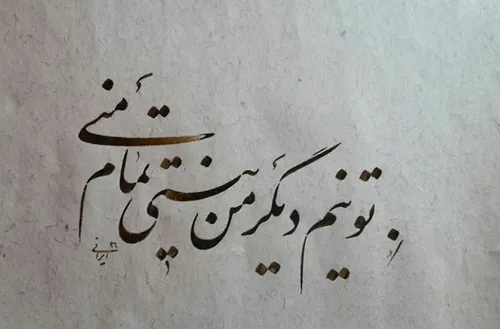 تو نیم دیگر من نیستی تمام منی
ایرانی